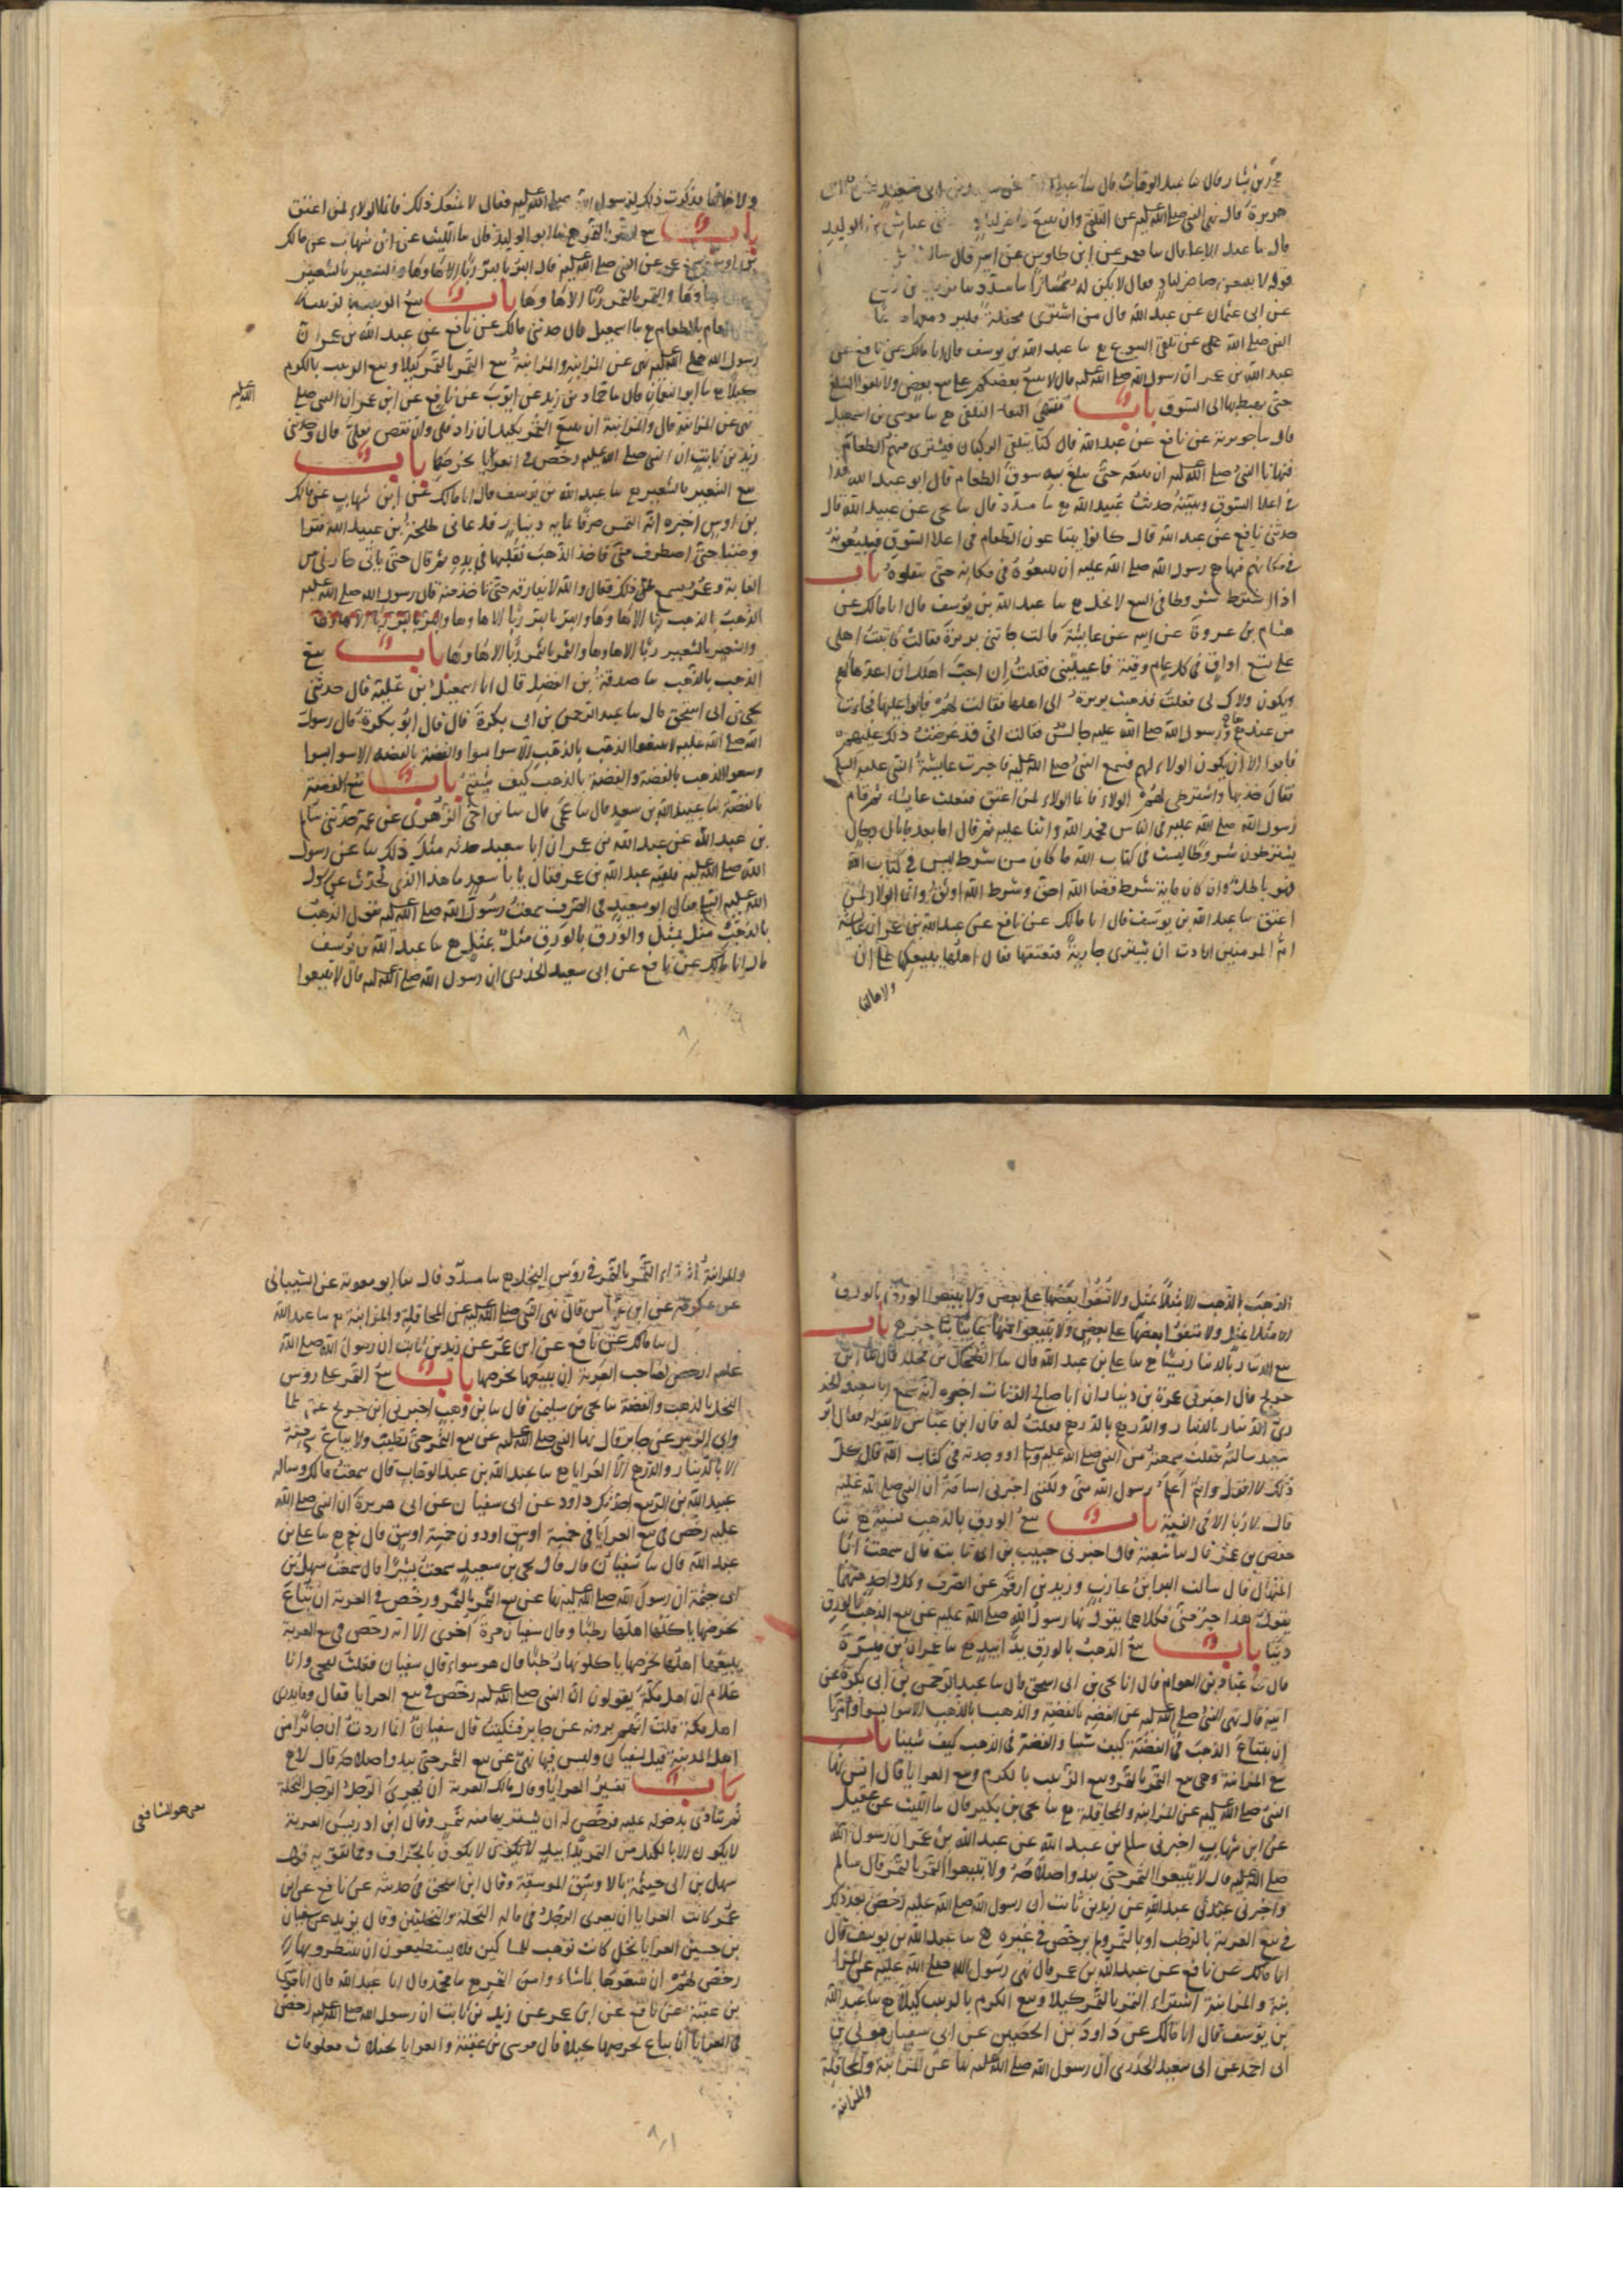 محمد بن بشار قال سا عبد الوهاب قال سا عبيد الله عن سعيد بن ابى سعيد عن ابى
هريرة قال نهى النبى صلى الله عليه عن التلقى وان يبيع حاضر لباد عياش بن الوليد
قال سا عبد الاعلا قال سا معمر عن ابن طاوس عن ابيه قال سالت
قوله لا يبيعن حاضر لباد فقال لا يكن له سمسارا سا مسدد سا يزيد بن زريع
عن ابى عثمان عن عبد الله قال من اشترى محفلة فليرد معها
النبى صلى الله عن تلقى البيوع سا عبد الله بن يوسف قال انا مالك عن نافع عن
عبد الله بن عمر ان رسول الله صلى الله عليه قال لا يبيع بعضكم على بيع بعض ولا تلقوا السلع
حتى يهبط بها الى السوق باب منتهى التلقى سا موسى بن اسمعيل
قال سا جويرية عن نافع عن عبد الله قال كنا نتلقى الركبان فنشترى منهم الطعام
فنهانا النبى صلى الله عليه ان نبيعه حتى يبلغ به سوق الطعام قال ابو عبد الله هذا
فى اعلا السوق ويبينه حديث عبيد الله سا مسدد قال سا يحيى عن عبيد الله قال
حدثنى نافع عن عبد الله قال كانوا يبتاعون الطعام فى اعلا السوق فيبيعونه
فى مكانهم فنهاهم رسول الله صلى الله عليه ان يبيعوه فى مكانه حتى ينقلوه باب
اذا اشترط شروطا فى البيع لا تحل سا عبد الله بن يوسف قال انا مالك عن
هشام بن عروة عن ابيه عن عايشة قالت جاتنى بريرة فقالت كاتبت اهلى
على تسع اواق فى كل عام وقية فاعينينى فقلت ان احب اهلك ان اعدها لهم
ويكون ولاك لى فعلت فذهبت بريرة الى اهلها فقالت لهم فابوا عليها فجاءت
من عندهم ورسول الله صلى الله عليه جالس فقالت انى قد عرضت ذلك عليهم
فابوا الا ان يكون الولاء لهم فسمع النبى صلى الله عليه فاخبرت عايشة النبى عليه السلم
فقال خذيها واشترطى لهم الولاء فانما الولاء لمن اعتق ففعلت عايشة ثم قام
رسول الله صلى الله عليه فى الناس فحمد الله واثنا عليه ثم قال اما بعد ما بال رجال
يشترطون شروطا ليست فى كتاب الله ما كان من شرط ليس فى كتاب الله
فهو باطل وان كان ماية شرط قضا الله احق وشرط الله اوثق وانما الولا لمن
اعتق سا عبد الله بن يوسف قال انا مالك عن نافع عن عبد الله بن عمر ان عايشة
ام المومنين ارادت ان تشترى جارية فتعتقها فقال اهلها نبيعكها على ان
ولاءها لنا
ولاءها لنا فذكرت ذلك لرسول الله صلى الله عليه فقال لا يمنعك ذلك فانما الولاء لمن اعتق
باب بيع التمر بالتمر سا ابو الوليد قال سا الليث عن ابن شهاب عن مالك
بن اوس سمع عمر عن النبى صلى الله عليه قال البر بالبر ربا الا ها وها والشعير بالشعير
ها وها والتمر بالتمر ربا الا ها وها باب بيع الزبيب بالزبيب
والطعام بالطعام سا اسمعيل قال حدثنى مالك عن نافع عن عبد الله بن عمر ان
رسول الله صلى الله عليه نهى عن المزابنة والمزابنة بيع التمر بالتمر كيلا وبيع الزبيب بالكرم
كيلا سا ابو النعمان قال سا حماد بن زيد عن ايوب عن نافع عن ابن عمر ان النبى صلى
الله عليه
نهى عن المزابنة قال والمزابنة ان يبيع التمر بكيل ان زاد فلى وان نقص فعلى قال وحدثنى
زيد بن ثابت ان النبى صلى الله عليه رخص فى العرايا بخرصها باب
بيع الشعير بالشعير سا عبد الله بن يوسف قال انا مالك عن ابن شهاب عن مالك
بن اوس اخبره انه التمس صرفا بماية دينار فدعانى طلحة بن عبيد الله فتراوضنا
حتى اصطرف منى فاخذ الذهب يقلبها فى يده ثم قال حتى ياتى خازنى من
الغابة وعمر يسمع ذلك فقال والله لا تفارقه حتى تاخذ منه قال رسول الله صلى الله عليه
الذهب بالذهب ربا الا ها وها والبر بالبر ربا الا ها وها
والشعير بالشعير ربا الا ها وها والتمر بالتمر ربا الا ها وها باب بيع
الذهب بالذهب سا صدقة بن الفضل قال انا اسمعيل بن علية قال حدثنى
يحيى بن ابى اسحق قال سا عبد الرحمن بن ابى بكرة قال قال ابو بكرة قال رسول
الله صلى الله عليه لا تبيعوا الذهب بالذهب الا سوا سوا والفضة بالفضة الا سوا سوا
وبيعوا الذهب بالفضة والفضة بالذهب كيف شيتم باب بيع الفضة
بالفضة سا عبيد الله بن سعيد قال سا عمى قال سا ابن اخى الزهرى عن عمه حدثنى سالم
بن عبد الله عن عبد الله بن عمر ان ابا سعيد حدثه مثل ذلك عن رسول
الله صلى الله عليه فلقيه عبد الله بن عمر فقال يا با سعيد ما هذا الذى تحدث عن رسول
الله عليه السلم فقال ابو سعيد فى الصرف سمعت رسول الله صلى الله عليه يقول الذهب
بالذهب مثل بمثل والورق بالورق مثل بمثل سا عبد الله بن يوسف
قال انا مالك عن نافع عن ابى سعيد الخدرى ان رسول الله صلى الله عليه قال لا تبيعوا
٨
الذهب بالذهب الا مثلا بمثل ولا تشفوا بعضها على بعض ولا تبيعوا الورق بالورق
الا مثلا بمثل ولا تشفوا بعضها على بعض ولا تبيعوا منها غايبا بناجز باب
بيع الدينار بالدينار نسا سا على بن عبد الله قال سا الضحاك بن مخلد قال سا ابن
جريج قال اخبرنى عمرو بن دينار ان ابا صالح الزيات اخبره انه سمع ابا سعيد الخد
رى الدينار بالدينار والدرهم بالدرهم فقلت له فان ابن عباس لا يقوله فقال ابو
سعيد سالته فقلت سمعته من النبى صلى الله عليه وسلم او وجدته فى كتاب الله قال كل
ذلك لا اقول وانتم اعلم برسول الله منى ولكننى اخبرنى اسامة ان النبى صلى الله عليه
قال لا ربا الا فى النسية باب بيع الورق بالذهب نسية سا
حفص بن عمر قال سا شعبة قال اخبرنى حبيب بن ابى ثابت قال سمعت ابا
المنهال قال سالت البرا بن عازب وزيد بن ارقم عن الصرف وكل واحد منهما
يقول هذا خير منى فكلاهما يقول نها رسول الله صلى الله عليه عن بيع الذهب بالورق
دينا باب بيع الذهب بالورق يدا بيد سا عمران بن ميسرة
قال سا عباد بن العوام قال انا يحيى بن ابى اسحق قال سا عبد الرحمن بن ابى بكرة عن
ابيه قال نهى النبى صلى الله عليه عن الفضة بالفضة والذهب بالذهب الا سوا بسوا وامرنا
ان نبتاع الذهب فى الفضة كيف شينا والفضة فى الذهب كيف شينا باب
بيع المزابنة وهى بيع التمر بالتمر وبيع الزبيب بالكرم وبيع العرايا قال انس نها
النبى صلى الله عليه عن المزابنة والمحاقلة سا يحيى بن بكير قال سا الليث عن عقيل
عن ابن شهاب اخبرنى سلم بن عبد الله عن عبد الله بن عمر ان رسول الله
صلى الله عليه قال لا تبيعوا التمر حتى يبدو صلاحه ولا تبيعوا التمر بالتمر قال سالم
واخبرنى عبد الله عن زيد بن ثابت ان رسول الله صلى الله عليه رخص بعد ذلك
فى بيع العرية بالرطب او بالتمر ولم يرخص فى غيره سا عبد الله بن يوسف قال
انا مالك عن نافع عن عبد الله بن عمر قال نهى رسول الله صلى الله عليه عن المزا
بنة والمزابنة اشتراء التمر بالتمر كيلا وبيع الكرم بالزبيب كيلا سا عبد الله
بن يوسف قال انا مالك عن داود بن الحصين عن ابى سفيان مولى بن
ابى احمد عن ابى سعيد الخدرى ان رسول الله صلى الله عليه نها عن المزابنة والمحاقلة
والمزابنة
والمزابنة اشتراء التمر بالتمر فى روس النخل سا مسدد قال سا ابو معوية عن الشيبانى
عن عكرمة عن ابن عباس قال نهى النبى صلى الله عليه عن المحاقلة والمزابنة سا عبد الله
سا مالك عن نافع عن ابن عمر عن زيد بن ثابت ان رسول الله صلى الله
عليه ارخص لصاحب العرية ان يبيعها بخرصها باب بيع التمر على روس
النخل بالذهب والفضة سا يحيى بن سليمن قال سا بن وهب اخبرنى ابن جريج عن عطا
وابى الزبير عن جابر قال نها النبى صلى الله عليه عن بيع التمر حتى تطيب ولا يباع شى منه
الا بالدينار والدرهم الا العرايا سا عبد الله بن عبد الوهاب قال سمعت مالك وساله
عبيد الله بن الربيع احدثك داود عن ابى سفيان عن ابى هريرة ان النبى صلى الله
عليه رخص فى بيع العرايا فى خمسة اوسق او دون خمسة اوسق قال نعم سا على بن
عبد الله قال سا سفيان قال قال يحيى بن سعيد سمعت بشيرا قال سمعت سهل بن
ابى حثمة ان رسول الله صلى الله عليه نها عن بيع التمر بالتمر ورخص فى العرية ان تباع
بخرصها ياكلها اهلها رطبا وقال سفيان مرة اخرى الا انه رخص فى بيع العرية
يبيعها اهلها بخرصها ياكلونها رطبا قال هو سواء قال سفيان فقلت ليحيى وانا
غلام ان اهل مكة يقولون ان النبى صلى الله عليه رخص فى بيع العرايا فقال وما يدرى
اهل مكة قلت انهم يروونه عن جابر فسكت قال سفيان انما اردت ان جابرا من
اهل المدينة قيل لسفيان وليس فيها نهى عن بيع التمر حتى يبدو صلاحه قال لا
باب تفسير العرايا وقال مالك العرية ان يعرى الرجل الرجل النخلة
ثم يتاذى بدخوله عليه فرخص له ان يشتريها منه بتمر وقال ابن ادريس العرية
يعنى هو الشافعى
لا يكون الا بالكيل من التمر يدا بيد لا يكون بالجزاف ومما يقويه قول
سهل بن ابى حثمة بالاوسق الموسقة وقال ابن اسحق فى حديثه عن نافع عن ابن
عمر كانت العرايا ان يعرى الرجل فى ماله النخلة والنخلتين وقال يزيد عن سفيان
بن حسين العرايا نخل كانت توهب للمساكين فلا يستطيعون ان ينتظروا بها
رخص لهم ان يبيعوها بما شاء وا من التمر سا محمد قال انا عبد الله قال انا موسى
بن عقبة عن نافع عن ابن عمر عن زيد بن ثابت ان رسول الله صلى الله عليه رخص
فى العرايا ان تباع بخرصها كيلا قال موسى بن عقبة والعرايا نخلات معلومات
٨١